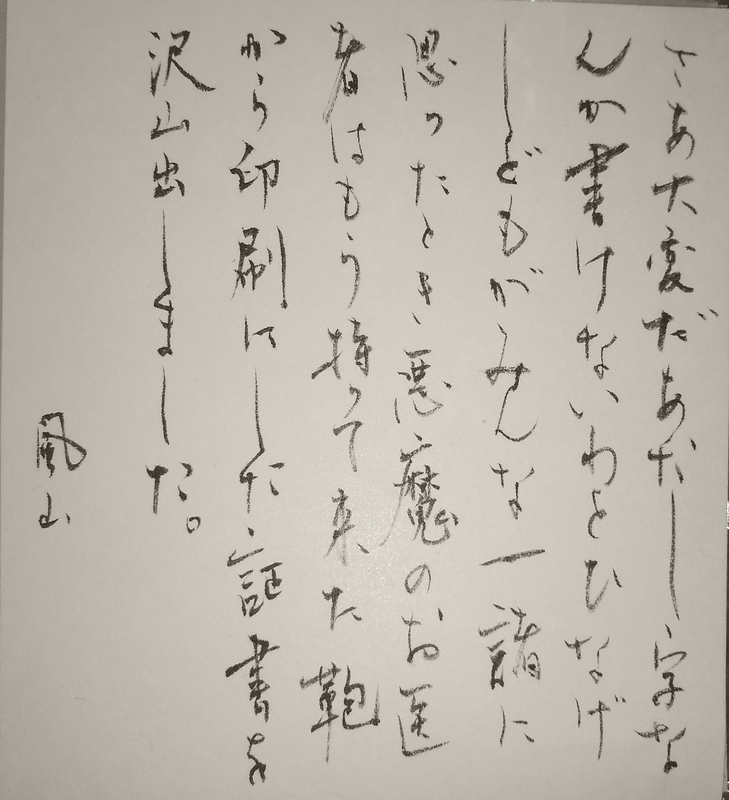 さあ大変だあたし字な
んか書けないわとひなげ
しどもがみんな一諸に
思ったとき悪魔のお医
者はもう持って来た鞄
から印刷にした証書を
沢山出しました。
風山